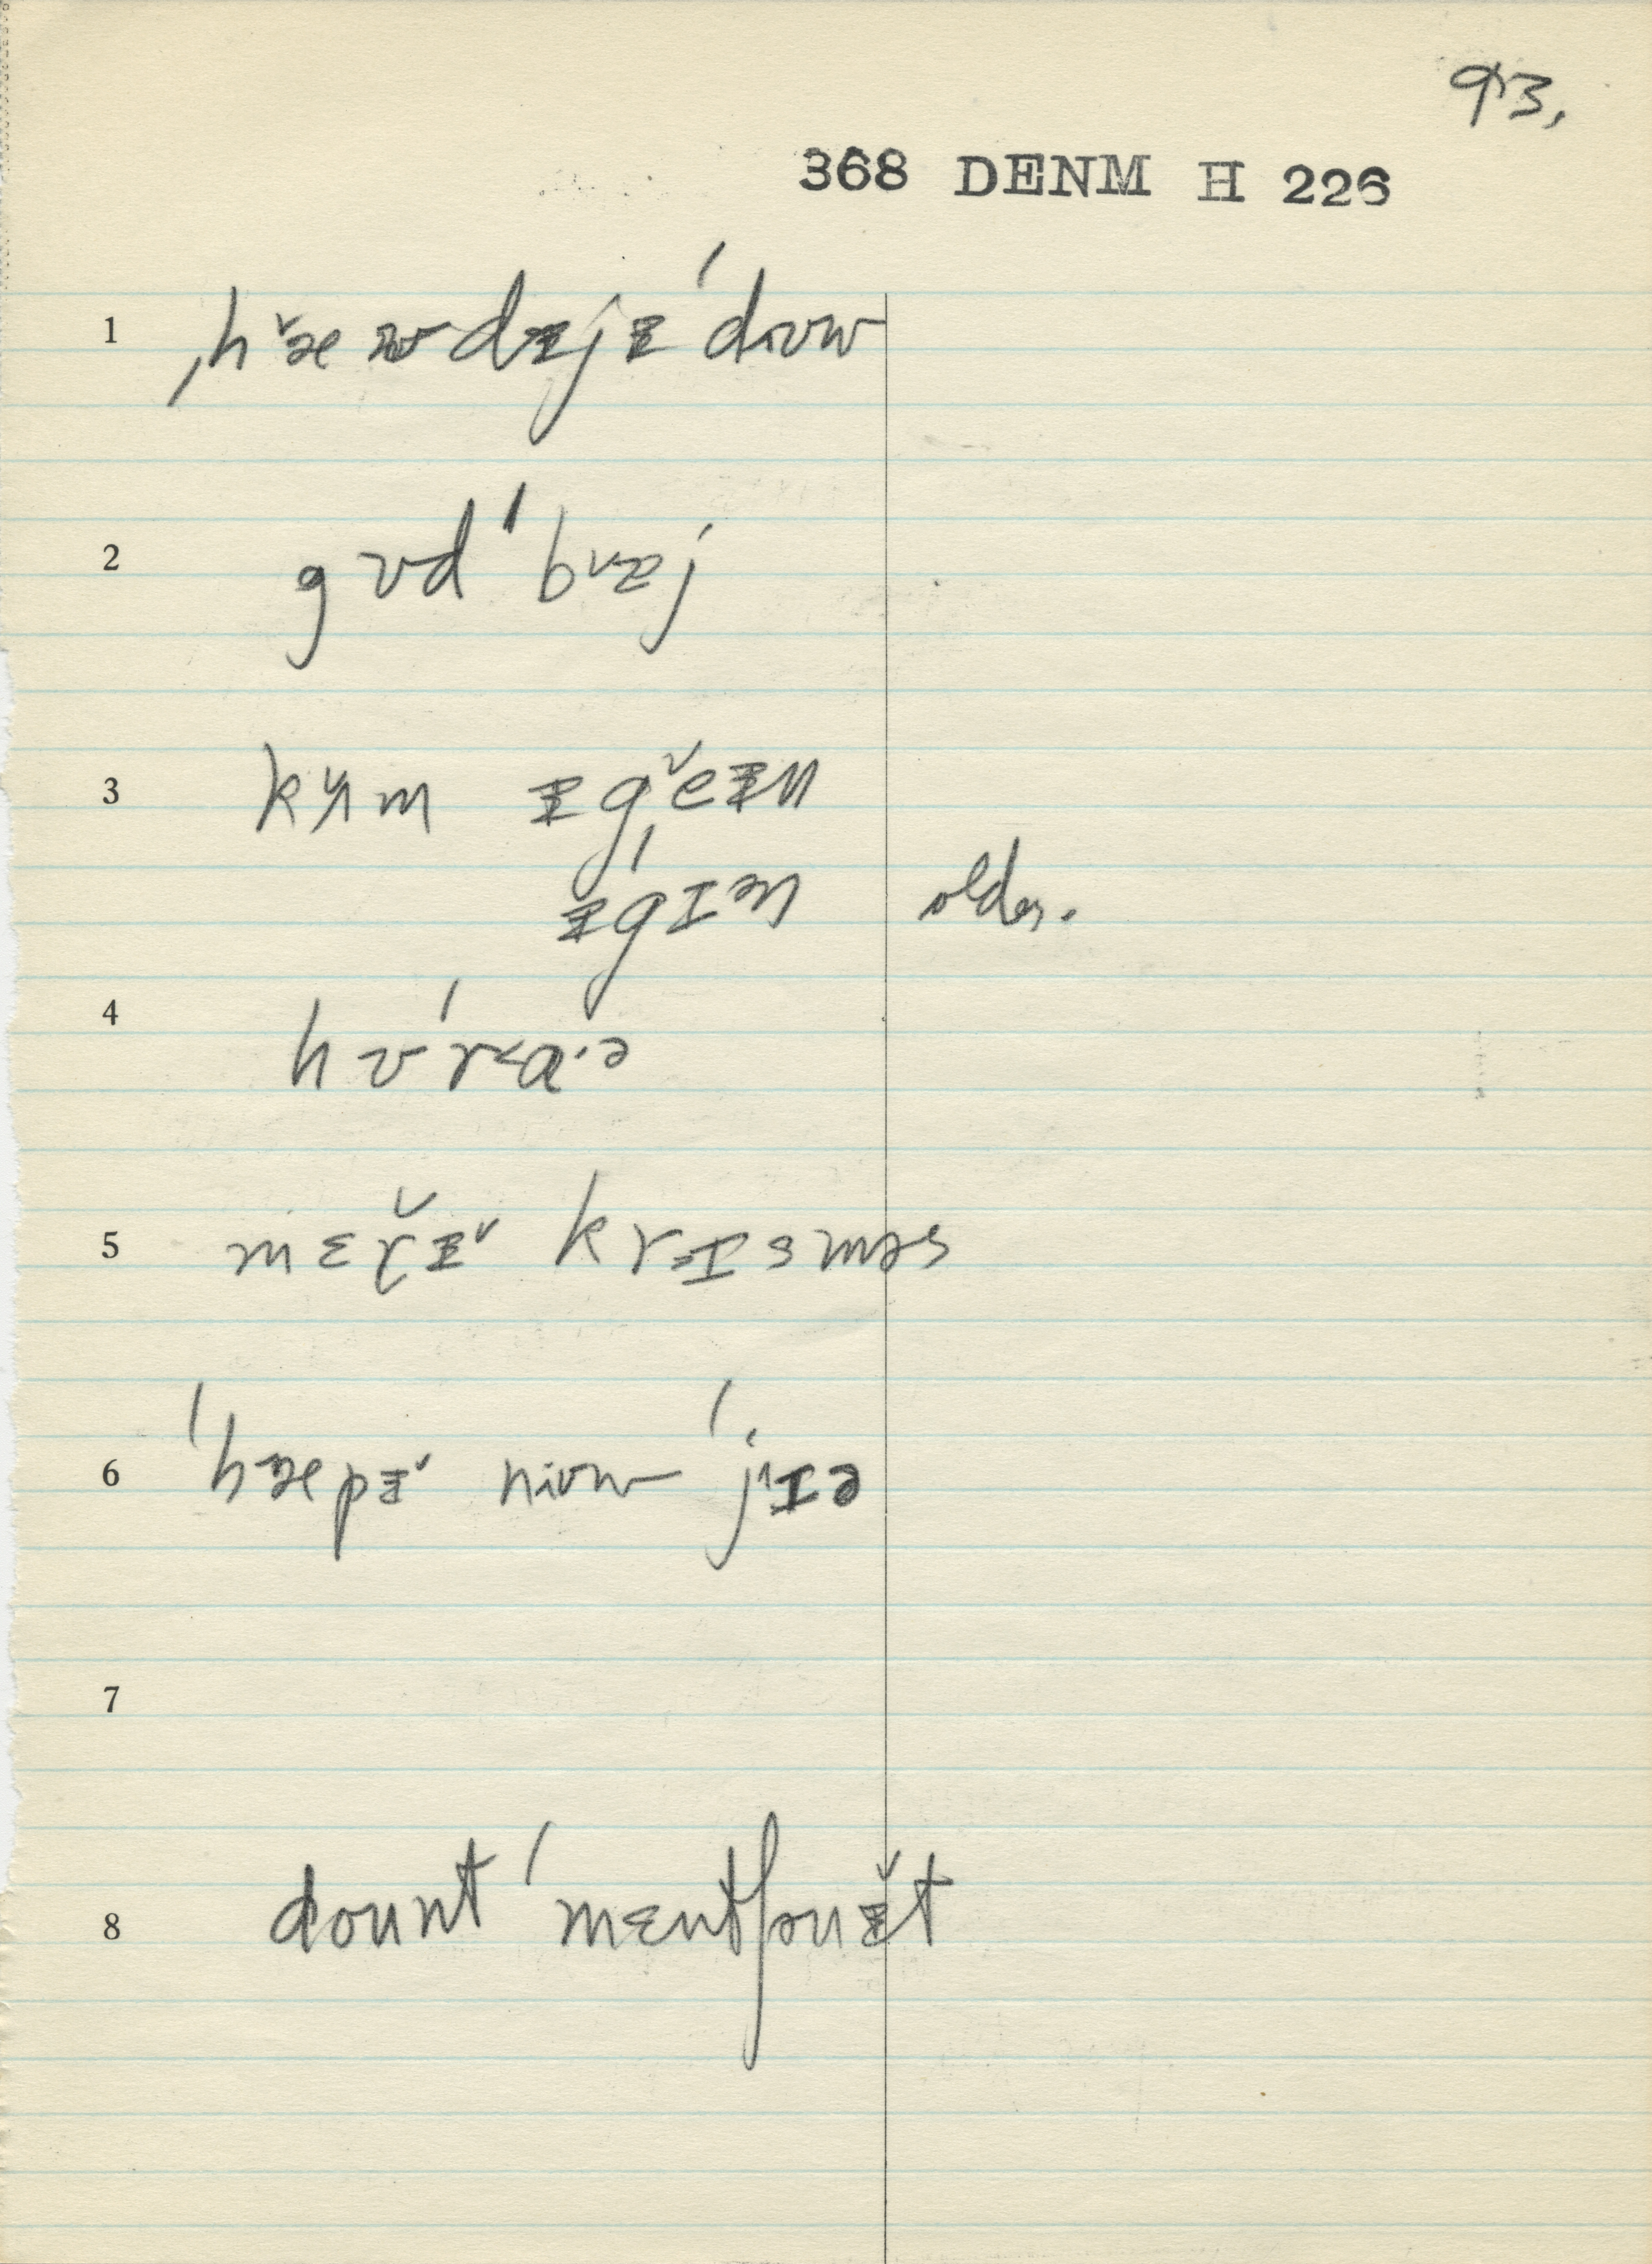 93,
368 DENM H 226
1 ˌhæ̌ʊdᵻjᵻ ˈdɪʊw
2 gʊd ˈbᵛæj
3 kʌ̌m ᵻgě ᵻn
ᵻˈgɪən older.
4 hʊˈr˂a·ə
5 mɛř̬ᵻ˅ kr˃ɪsməs
6 ˈhæpᵻ˅ nɪʊw ˈj˄ɪə
7
8 dount ˈmɛntʃənᵻ̌t